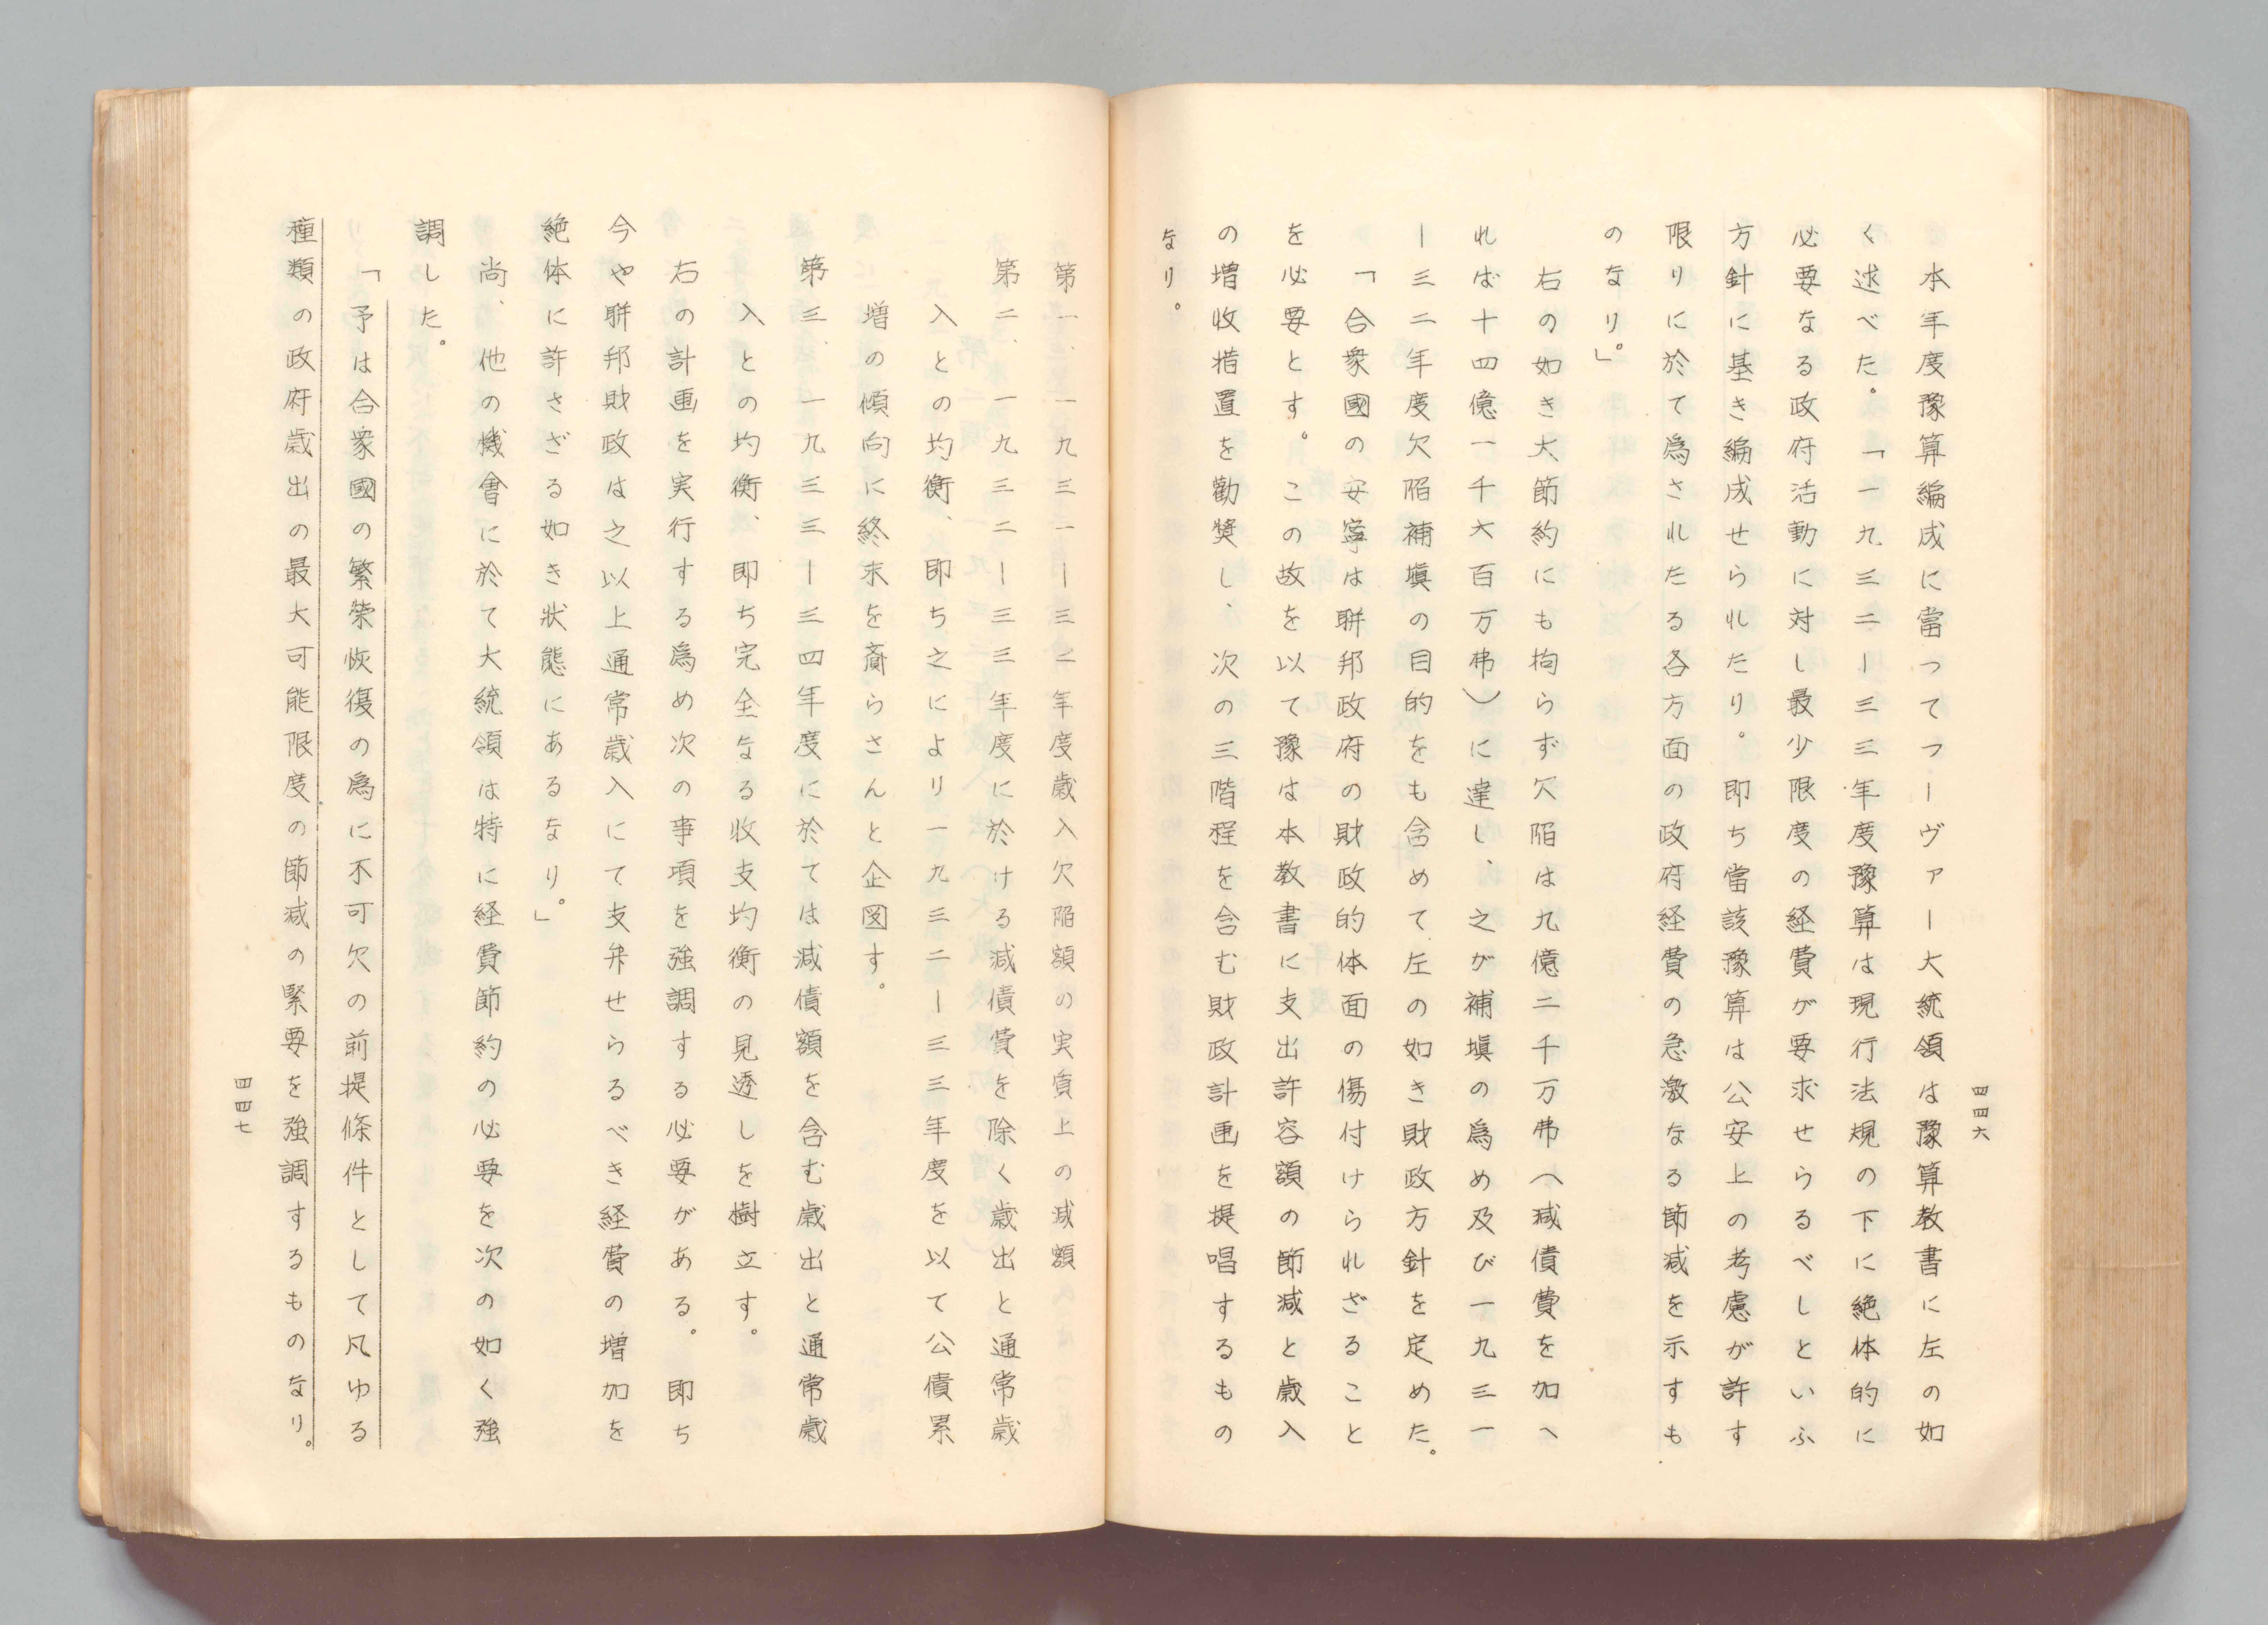 四四六
本年度豫算編成に當つてフーヴァー大統領は豫算教書に左の如
く述べた。「一九三二ー三三年度豫算は現行法規の下に絶体的に
必要なる政府活動に対し最少限度の経費が要求せらるべしといふ
方針に基き編成せられたり。即ち當該豫算は公安上の考慮が許す
限りに於て爲されたる各方面の政府経費の急激なる節減を示すも
のなり。」
右の如き大節約にも拘らず欠陥は九億二千万弗(減債費を加へ
れば十四億一千六百万弗)に達し、之が補塡の爲め及び一九三一
ー三二年度欠陥補塡の目的をも含めて左の如き財政方針を定めた。
「合衆國の安寧は聨邦政府の財政的体面の傷付けられざること
を必要とす。この故を以て豫は本教書に支出許容額の節減と歳入
の増收措置を勸奬し、次の三階程を含む財政計画を提唱するもの
なり。
第一、一九三一ー三二年度歳入欠陥額の実質上の減額
第二、一九三二ー三三年度に於ける減債費を除く歳出と通常歳
入との均衡、即ち之により一九三二ー三三年度を以て公債累
増の傾向に終末を齎らさんと企図す。
第三、一九三三ー三四年度に於ては減債額を含む歳出と通常歳
入との均衡、即ち完全なる收支均衡の見透しを樹立す。
右の計画を実行する爲め次の事項を強調する必要がある。即ち
今や聨邦財政は之以上通常歳入にて支弁せらるべき経費の増加を
絶体に許さざる如き狀態にあるなり。」
尚、他の機會に於て大統領は特に経費節約の必要を次の如く強
調した。
「予は合衆國の繁榮恢復の爲に不可欠の前提條件として凡ゆる
種類の政府歳出の最大可能限度の節減の緊要を強調するものなり。
四四七